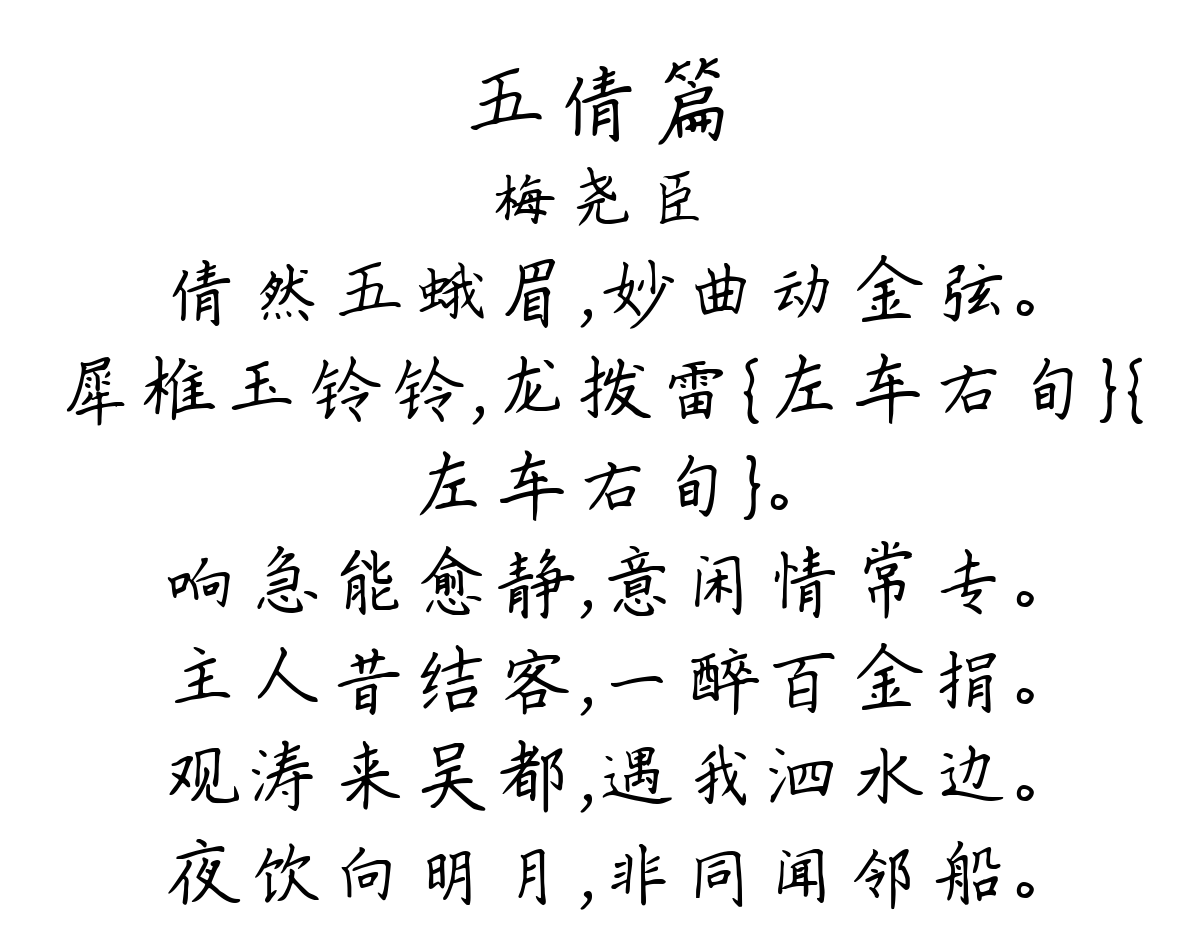 五倩篇
梅尧臣
倩然五蛾眉,妙曲动金弦。
犀椎玉铃铃,龙拨雷{左车右旬}{
左车右旬}。
响急能愈静,意闲情常专。
主人昔结客,一醉百金捐。
观涛来吴都,遇我泗水边。
夜饮向明月,非同闻邻船。